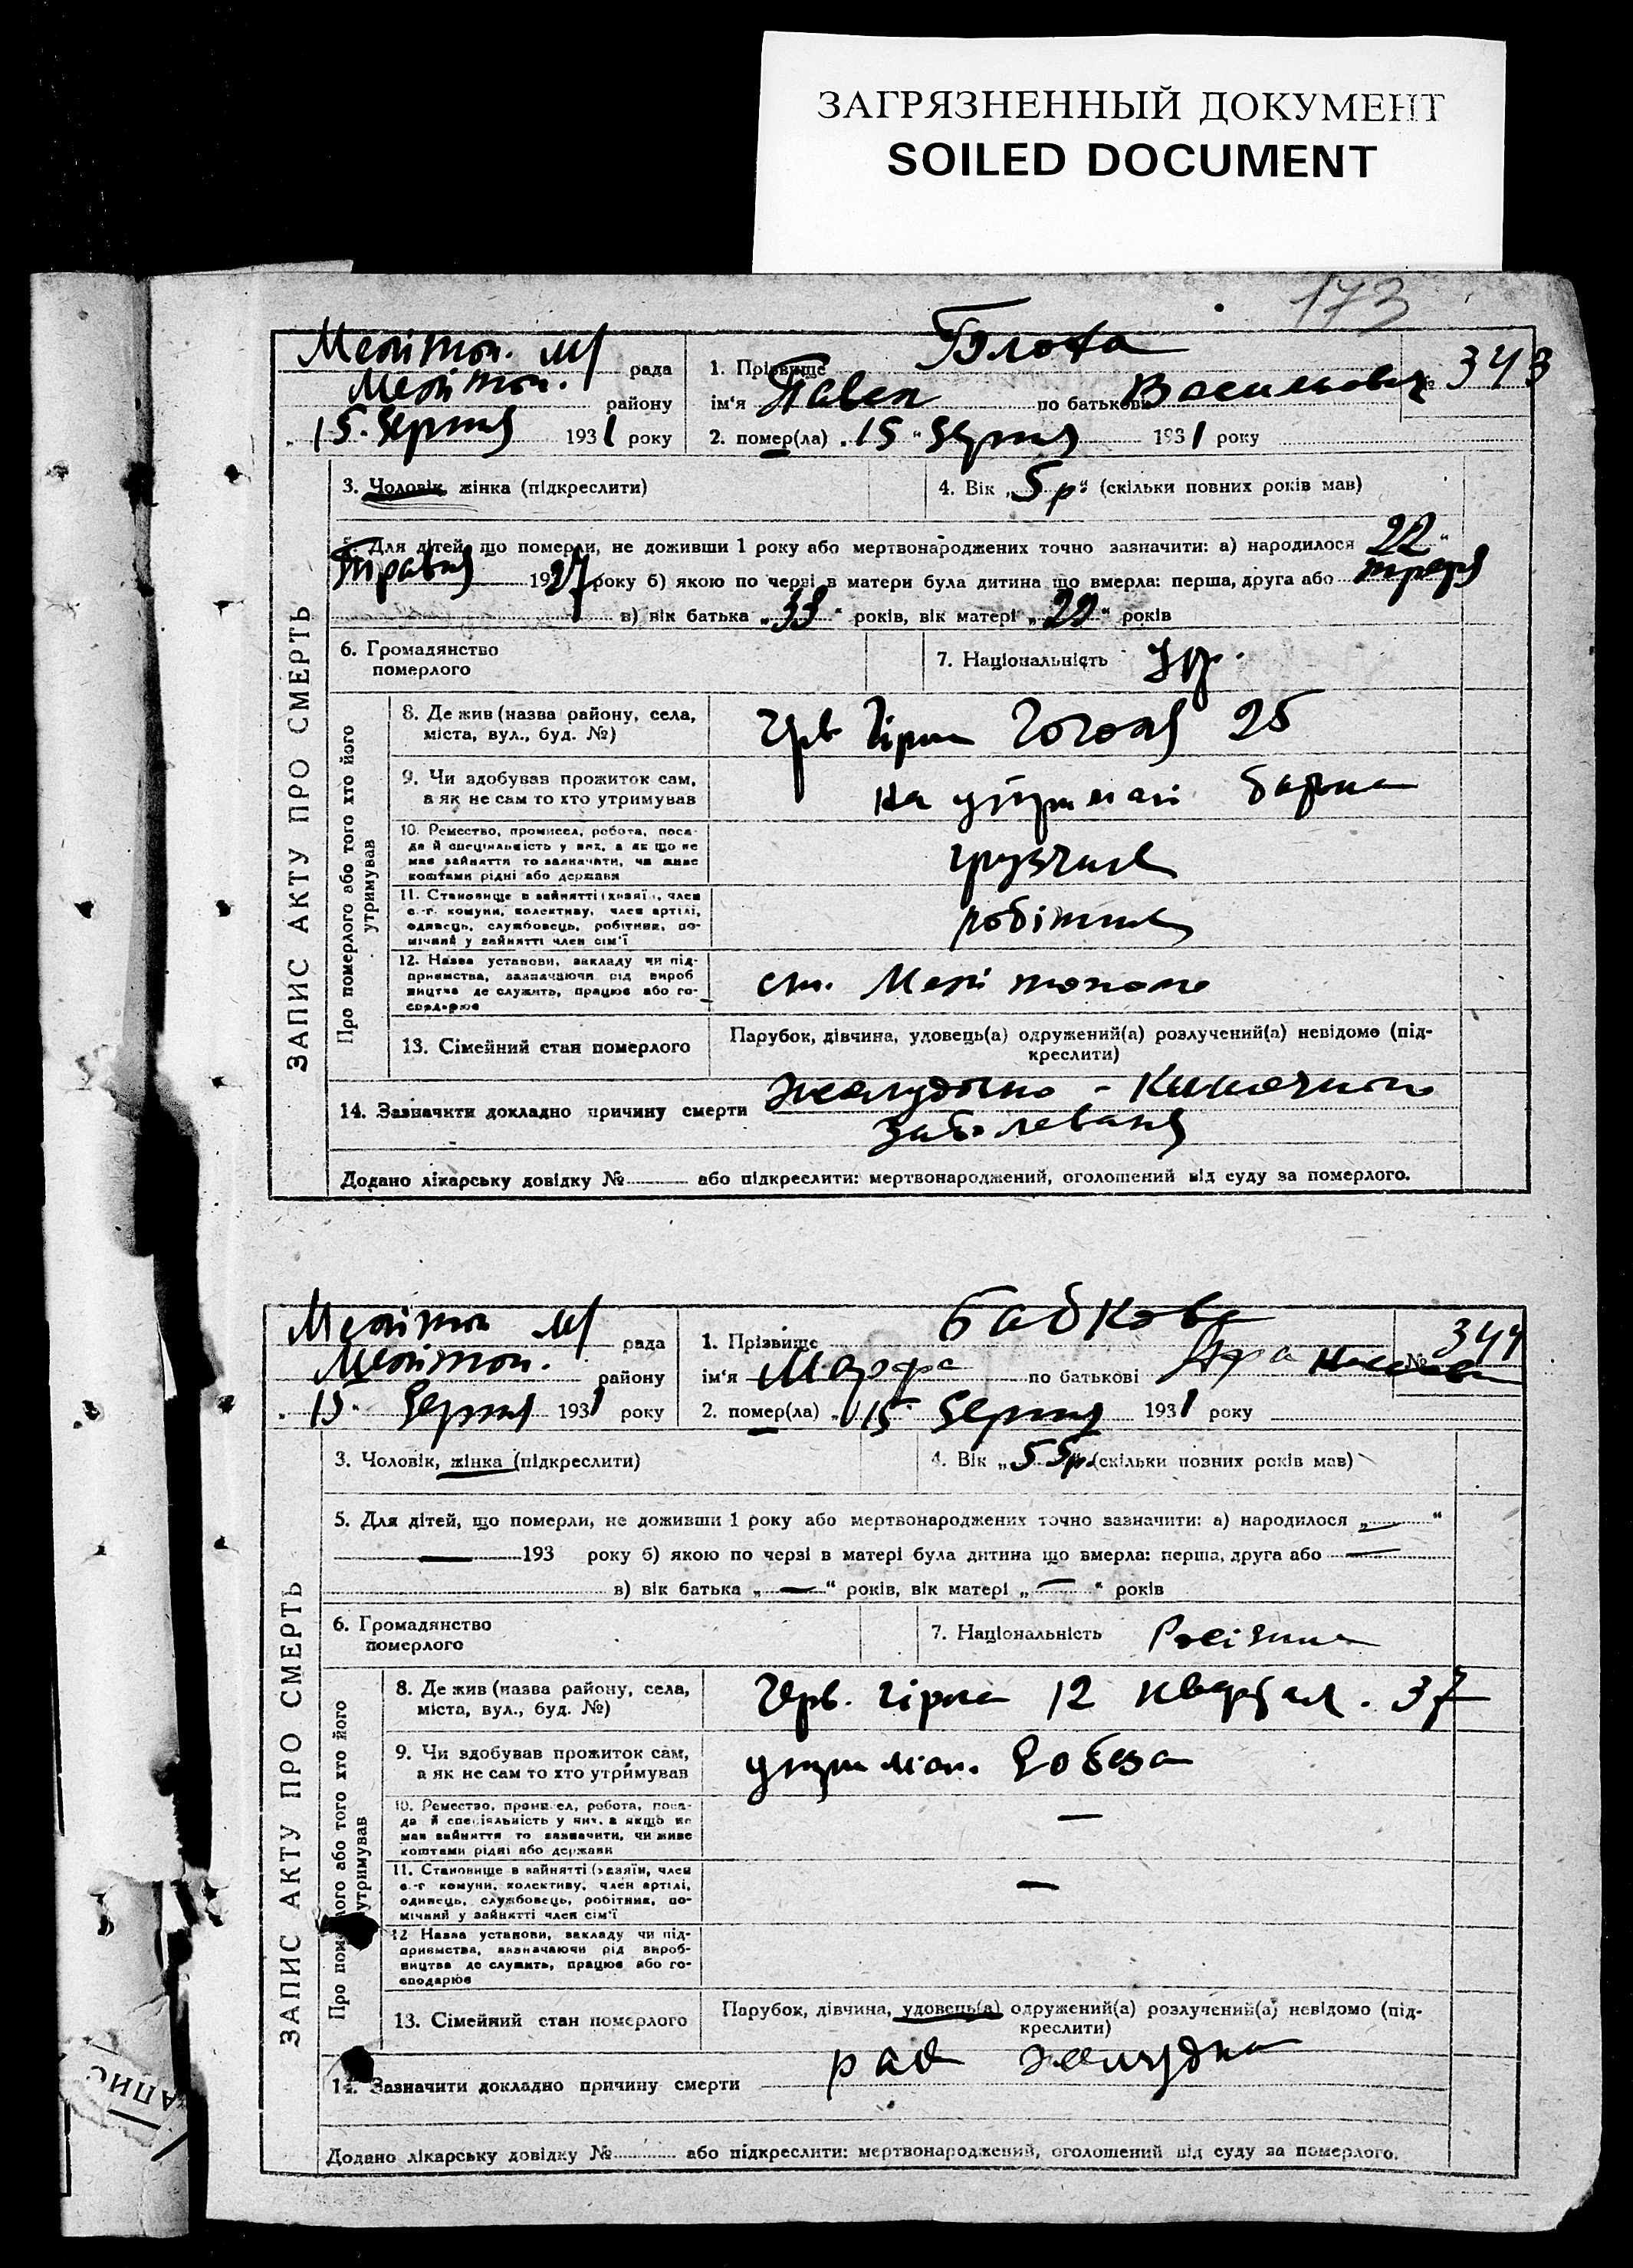 ЗАГРЯЗНЕННЫЙ ДОКУМЕНТ
SOILED DOCUMENT
173
ЗАПИС АКТУ ПРО СМЕРТЬ
Меліт. м/ рада
Меліт. району
15. Серпня 1931 року
1. Прізвище
№ 343
ім‘я Павел по батькові Васильович
2. помер(ла) „15“ Серпня 1931 року
3. Чоловік, жінка (підкреслити)
4. Вік „5 р“ (скільки повних років мав)
5. Для дітей, що померли, не доживши 1 року або мертвонароджених точно зазначити: а) народилося „22“
Травня 1927 року б) якою по черзі в матери була дитина що вмерла: перша, друга або третя
в) вік батька „33“ років, вік матері „29“ років
6. Громадянство
померлого
7. Національність Укр.
Про померлого або того хто його
утримував
8. Де жив (назва району, села,
міста, вул., буд. №)
Черв Гірка Гоголя 25
9. Чи здобував прожиток сам,
а як не сам то хто утримував
на утриман батька
10. Ремество, промисел, робота, поса-
да й спеціяльність у них, а як що не
мав зайняття то зазначити, чи живе
коштами рідні або держави
грузчик
11. Становище в зайнятті (хазяїн, член
с.-г. комуни, колективу, член артілі,
одинець, службовець, робітник, по-
мічний у зайнятті член сім‘ї
робітник
12. Назва установи, закладу чи під-
приємства, зазначаючи рід вироб
ництва де служить, працює або го-
сподарює
ст. Мелітополь
13. Сімейний стан померлого
Парубок, дівчина, удовець(а) одружений(а) розлучений(а) невідомо (під-
креслити)
14. Зазначити докладно причину смерти Желудочно - Кишечного
заболевания
Додано лікарську довідку № або підкреслити: мертвонароджений, оголошений від суду за померлого.
ЗАПИС АКТУ ПРО СМЕРТЬ
Меліт м/ рада
Меліт. району
15. Серпня 1931 року
1. Прізвище Бабкова
№ 344
ім‘я Марфа по батькові
2. помер(ла) „15 Серпня 1931 року
3. Чоловік, жінка (підкреслити)
4. Вік „55р. (скільки повних років мав)
5. Для дітей, що померли, не доживши 1 року або мертвонароджених точно зазначити: а) народилося „—“
— 193 року б) якою по черзі в матері була дитина що вмерла: перша, друга або —
в) вік батька „—“ років, вік матері „—“ років
6. Громадянство
померлого
7. Національність Росіянка
Про померлого або того хто його
утримував
8. Де жив (назва району, села,
міста, вул., буд. №)
Черв. гірка 12 квартал. 37
9. Чи здобував прожиток сам,
а як не сам то хто утримував
утриман. Собеза
10. Ремество, промисел, робота, поса-
да й спеціяльність у них, а якщо не
мав зайняття то зазначити, чи живе
коштами рідні або держави
—
11. Становище в зайнятті (хазяїн, член
с.-г. комуни, колективу, член артілі,
одинець, службовець, робітник, по-
мічний у зайнятті член сім‘ї
—
12 Назва установи, закладу чи під-
приємства, зазначаючи рід вироб-
ництва де служить, працює або го-
сподарює
13. Сімейний стан померлого
Парубок, дівчина, удовець(а) одружений(а) розлучений(а) невідомо (під-
креслити)
14. Зазначити докладно причину смерти рак желудка
Додано лікарську довідку № або підкреслити: мертвонароджений, оголошений від суду за померлого.